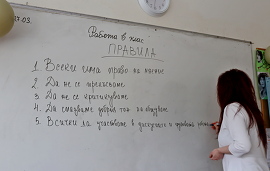 07.03.
Работа в клас
ПРАВИЛА
1. Всеки има право на мнение
2. Да не се прекъсваме
3. Да не се критикуваме
4. Да спазваме добрия тон на общуване
5. Всички да участваме в дискусията и груповата работа